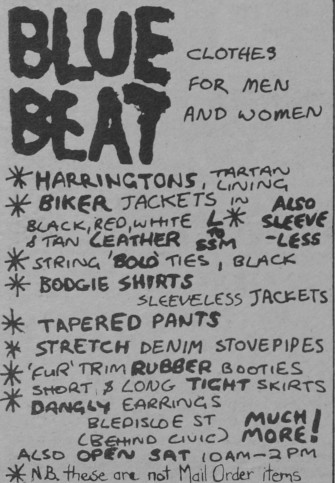 BLUE
BEAT
CLOTHES
FOR MEN
AND WOMEN
* HARRINGTONS, TARTAN LINING
* BIKER JACKETS IN
BLACK, RED, WHITE
& TAN LEATHER L TO SSM
* ALSO SLEEVE-LESS
* STRING 'BOLO' TIES, BLACK
* BODGIE SHIRTS
SLEEVELESS JACKETS
* TAPERED PANTS
* STRETCH DENIM STOVEPIPES
* 'FUR' TRIM RUBBER BOOTIES
SHORT, & LONG TIGHT SKIRTS
* DANGLY EARRINGS
BLEDISLOE ST
(BEHIND CIVIC)
MUCH MORE!
ALSO OPEN SAT 10AM-2PM
* N.B. these are not Mail Order items